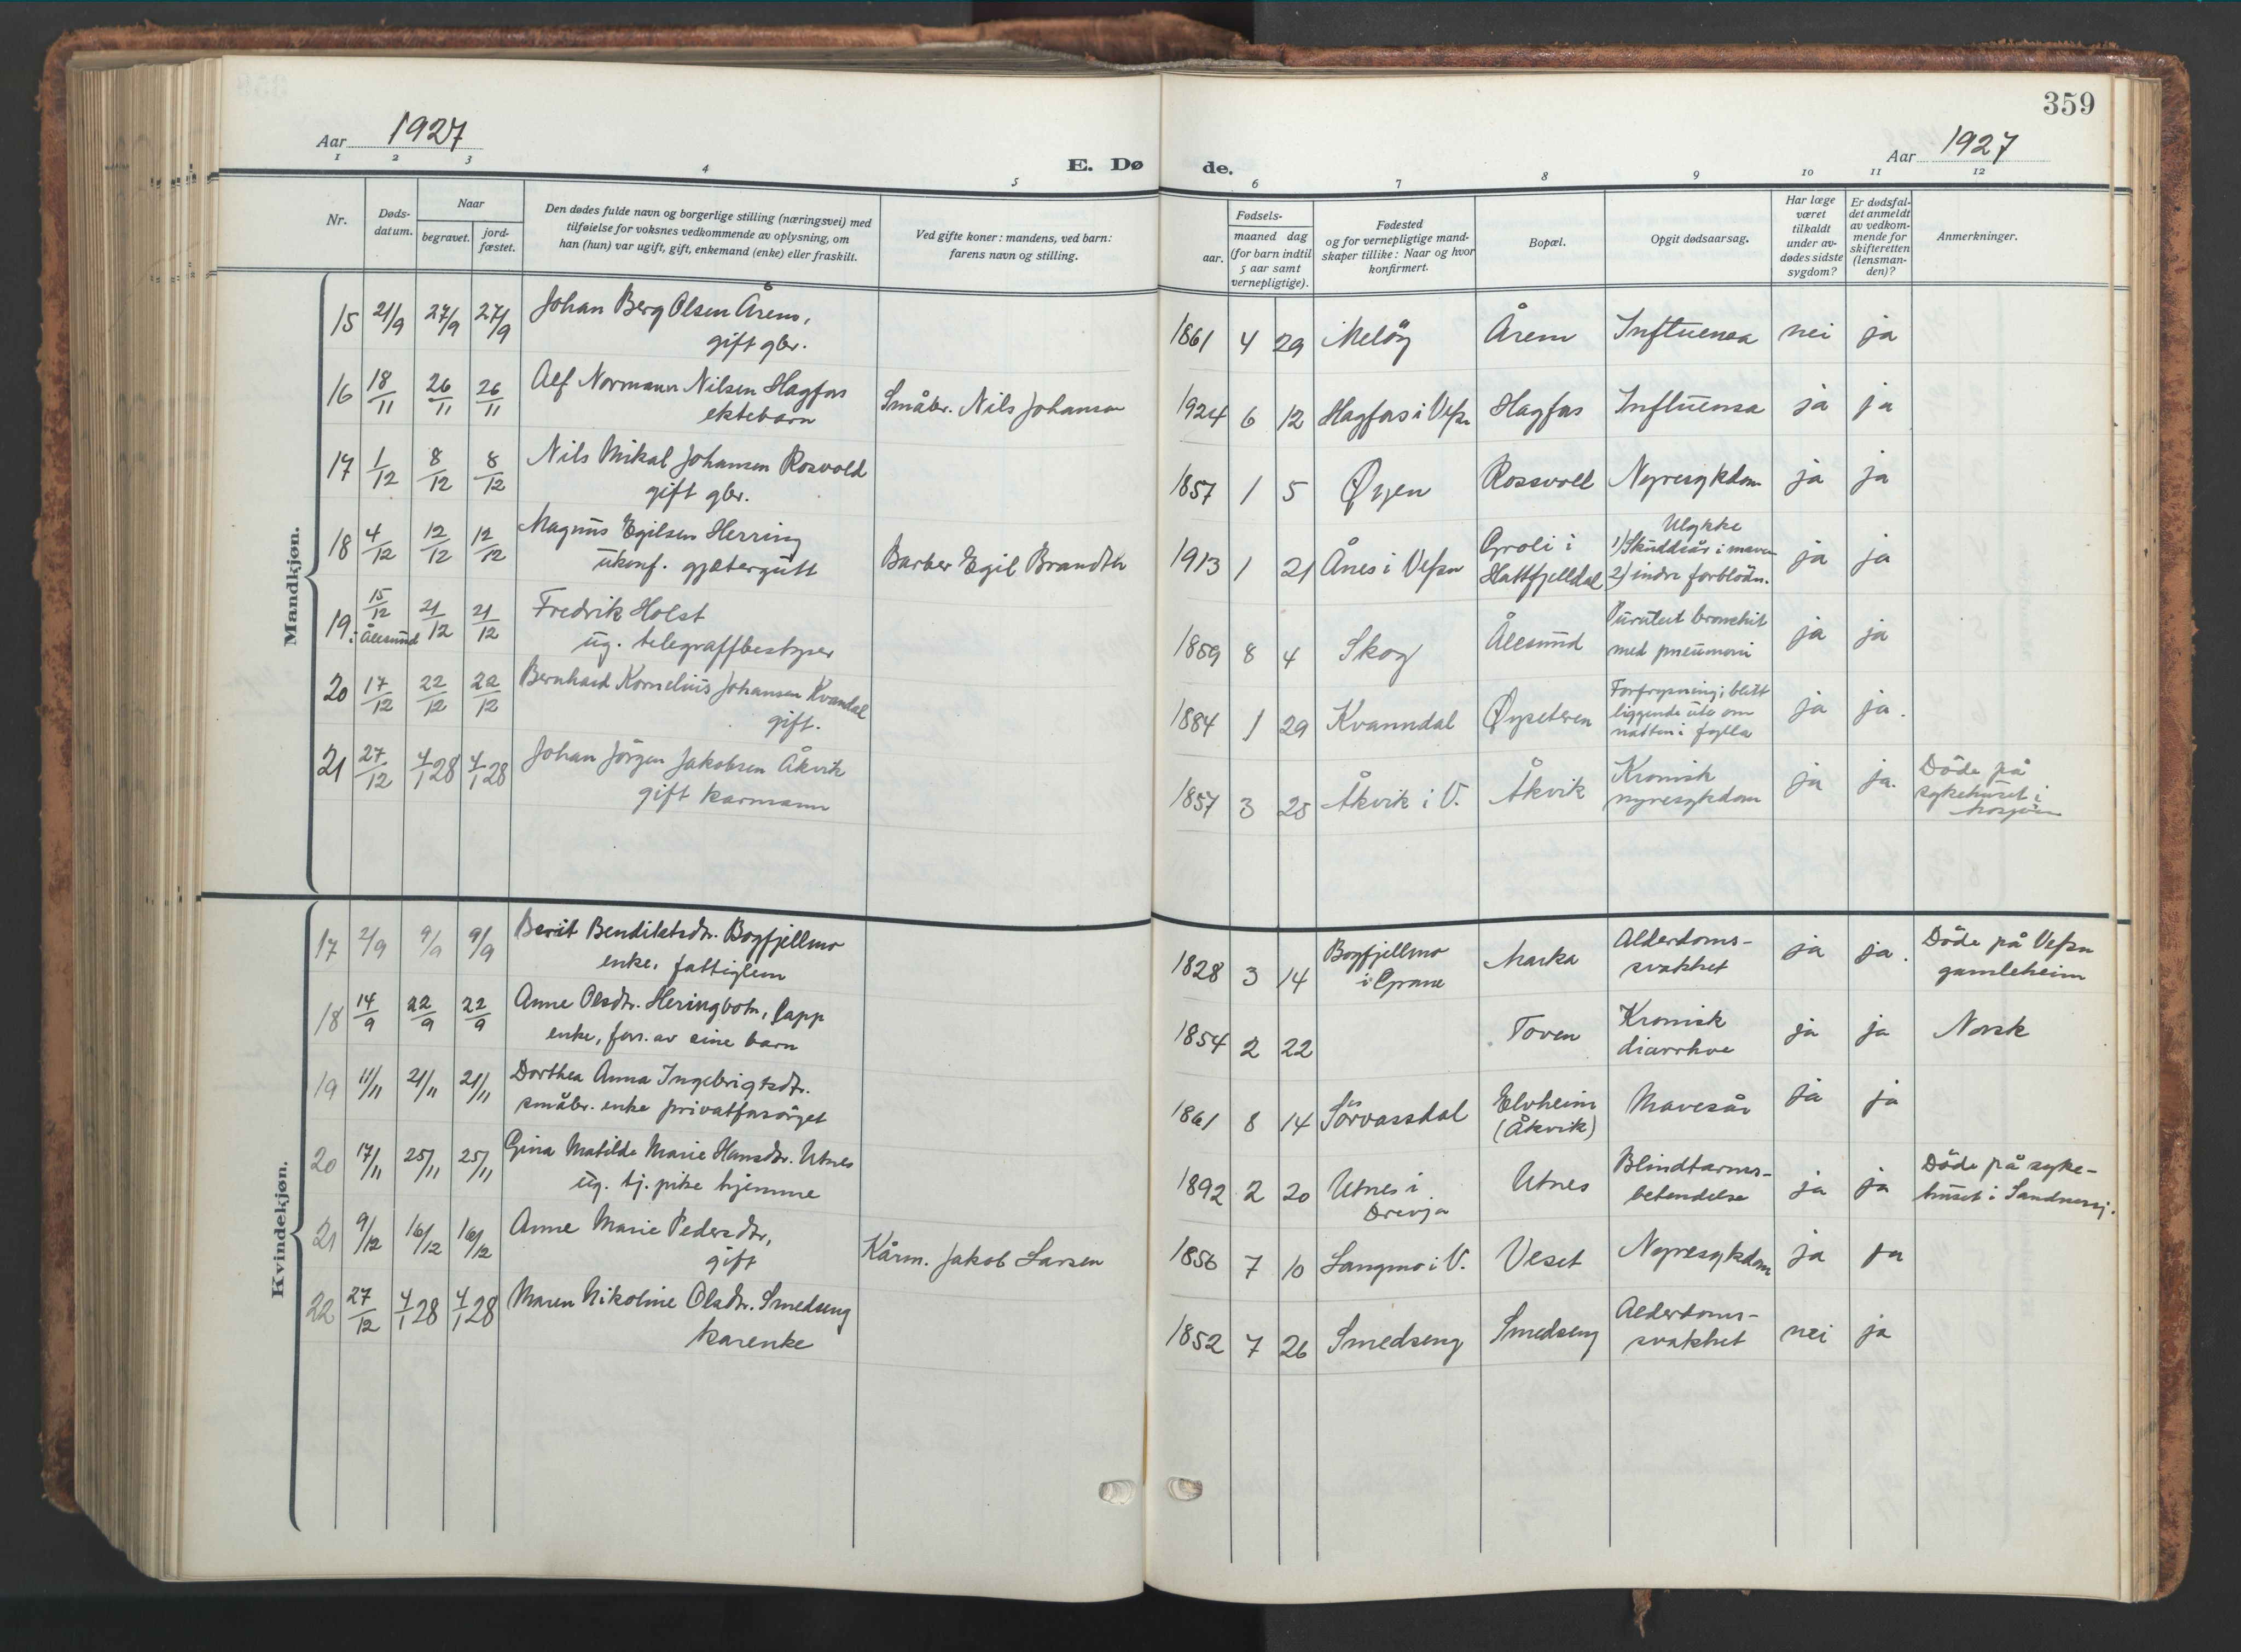 359
Aar 1927
E. Dø de.
Aar 1927
1 2 3 4 5 6 7 8 9 10 11 12
Nr.
Døds-
datum.
Naar
begravet.
jord-
fæstet.
Den dødes fulde navn og borgerlige stilling (næringsvei) med
tilføielse for voksnes vedkommende av oplysning, om
han (hun) var ugift, gift, enkemand (enke) eller fraskilt.
Ved gifte koner: mandens, ved barn:
farens navn og stilling.
Fødsels-
aar.
maaned dag
(for barn indtil
5 aar samt
vernepligtige).
Fødested
og for vernepligtige mand-
skaper tillike: Naar og hvor
konfirmert.
Bopæl.
Opgit dødsaarsag.
Har læge
været
tilkaldt
under av-
dødes sidste
sygdom?
Er dødsfal-
det anmeldt
av vedkom-
mende for
skifteretten
(lensman-
den)?
Anmerkninger.
Mandkjøn.
15 21/9 27/9 27/9 Johan Berg Olsen Årem,
gift gbr.
1861 4 29 Meløy Årem Influensa nei ja
16 18/11 26/11 26/11 Alf Normann Nilsen Hagfors
ektebarn
Småbr. Nils Johanson
1924 6 12 Hagfors i Vefsn Hagfors Influensa ja ja
17 1/12 8/12 8/12 Nils Mikal Johansen Rosvold
gift gbr.
1857 1 5 Øyen Rossvoll Nyresykdom ja ja
18 4/12 12/12 12/12 Magnus Egilsen Herring
ukonf. gjætergutt
Barber Egil Brandth
1913 1 21 Ånes i Vefsn
Groli i
Hattfjelldal
Ulykke
1) Skuddsår i maven
2) indre forblødn.
ja ja
19 15/12 i Ålesund 21/12 21/12 Fredrik Holst
ug. telegraffbestyrer
1859 8 4 Skog Ålesund
Purulent bronchit
med pneumoni
ja ja
20 17/12 22/12 22/12 Bernhard Kornelius Johansen Kvandal
gift.
1884 1 29 Kvanndal Øyseteren
Forfrysning; blitt
liggende ute om
natten i fylla
ja ja.
21 27/12 4/1 28 4/1 28 Johan Jörgen Jakobsen Åkvik
gift karmann
1857 3 25 Åkvik i V. Åkvik
Kronisk
nyresykdom
ja ja.
Döde på
sykehuset i
Mosjøen
Kvindekjøn.
17 2/9 9/9 9/9 Berit Bendiktsdtr. Bogfjellmo
enke, fattiglem
1828 3 14
Bogfjellmo
i Grane
Marka
Alderdoms-
svakhet
ja ja.
Döde på Vefsn
gamleheim
18 14/9 22/9 22/9 Anne Olsdtr. Heringbotn, lapp
enke, fors. av sine barn
1854 2 22 Toven
Kronisk
diarrhoe
ja ja Norsk
19 11/11 21/11 21/11 Dorthea Anna Ingebrigtsdtr.
småbr. enke privatforsörget
1861 8 14 Sörvassdal
Elvheim
(Åkvik)
Mavesår ja ja
20 17/11 25/11 25/11 Gina Matilde Marie Hansdtr. Utnes
ug. tj. pike hjemme
1892 2 20
Utnes i
Drevja
Utnes
Blindtarms-
betendelse
ja ja
Döde på syke-
huset i Sandnessj.
21 9/12 16/12 16/12 Anne Marie Pedersdtr,
gift
Kårm. Jakob Larsen
1856 7 10 Langmo i V. Veset Nyresykdom ja ja
22 27/12 4/1 28 4/1 28 Maren Nikoline Olsdtr. Smedseng
karenke
1852 7 26 Smedseng Smedseng
Alderdoms-
svakhet
nei ja